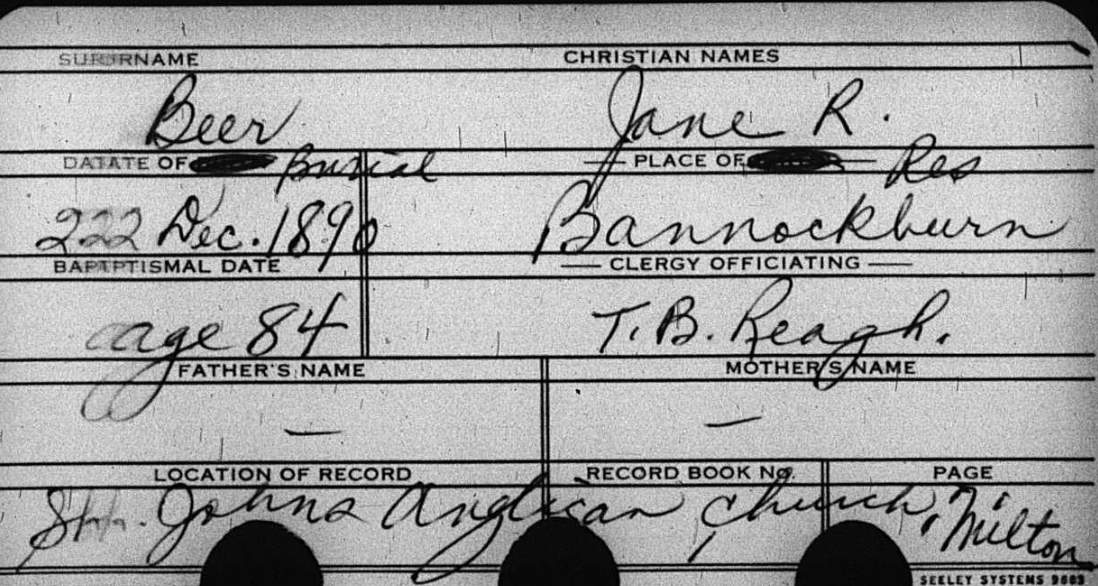 SURNAME CHRISTIAN NAMES
Beer Jane R.
DATE OF Burial PLACE OF Res
22 Dec. 1890 Bannockburn
BAPTISMAL DATE CLERGY OFFICIATING
age 84 T. B. Reagh.
FATHER'S NAME MOTHER'S NAME
— —
LOCATION OF RECORD RECORD BOOK No. PAGE
St. Johns Anglican Church, Milton
SEELEY SYSTEMS